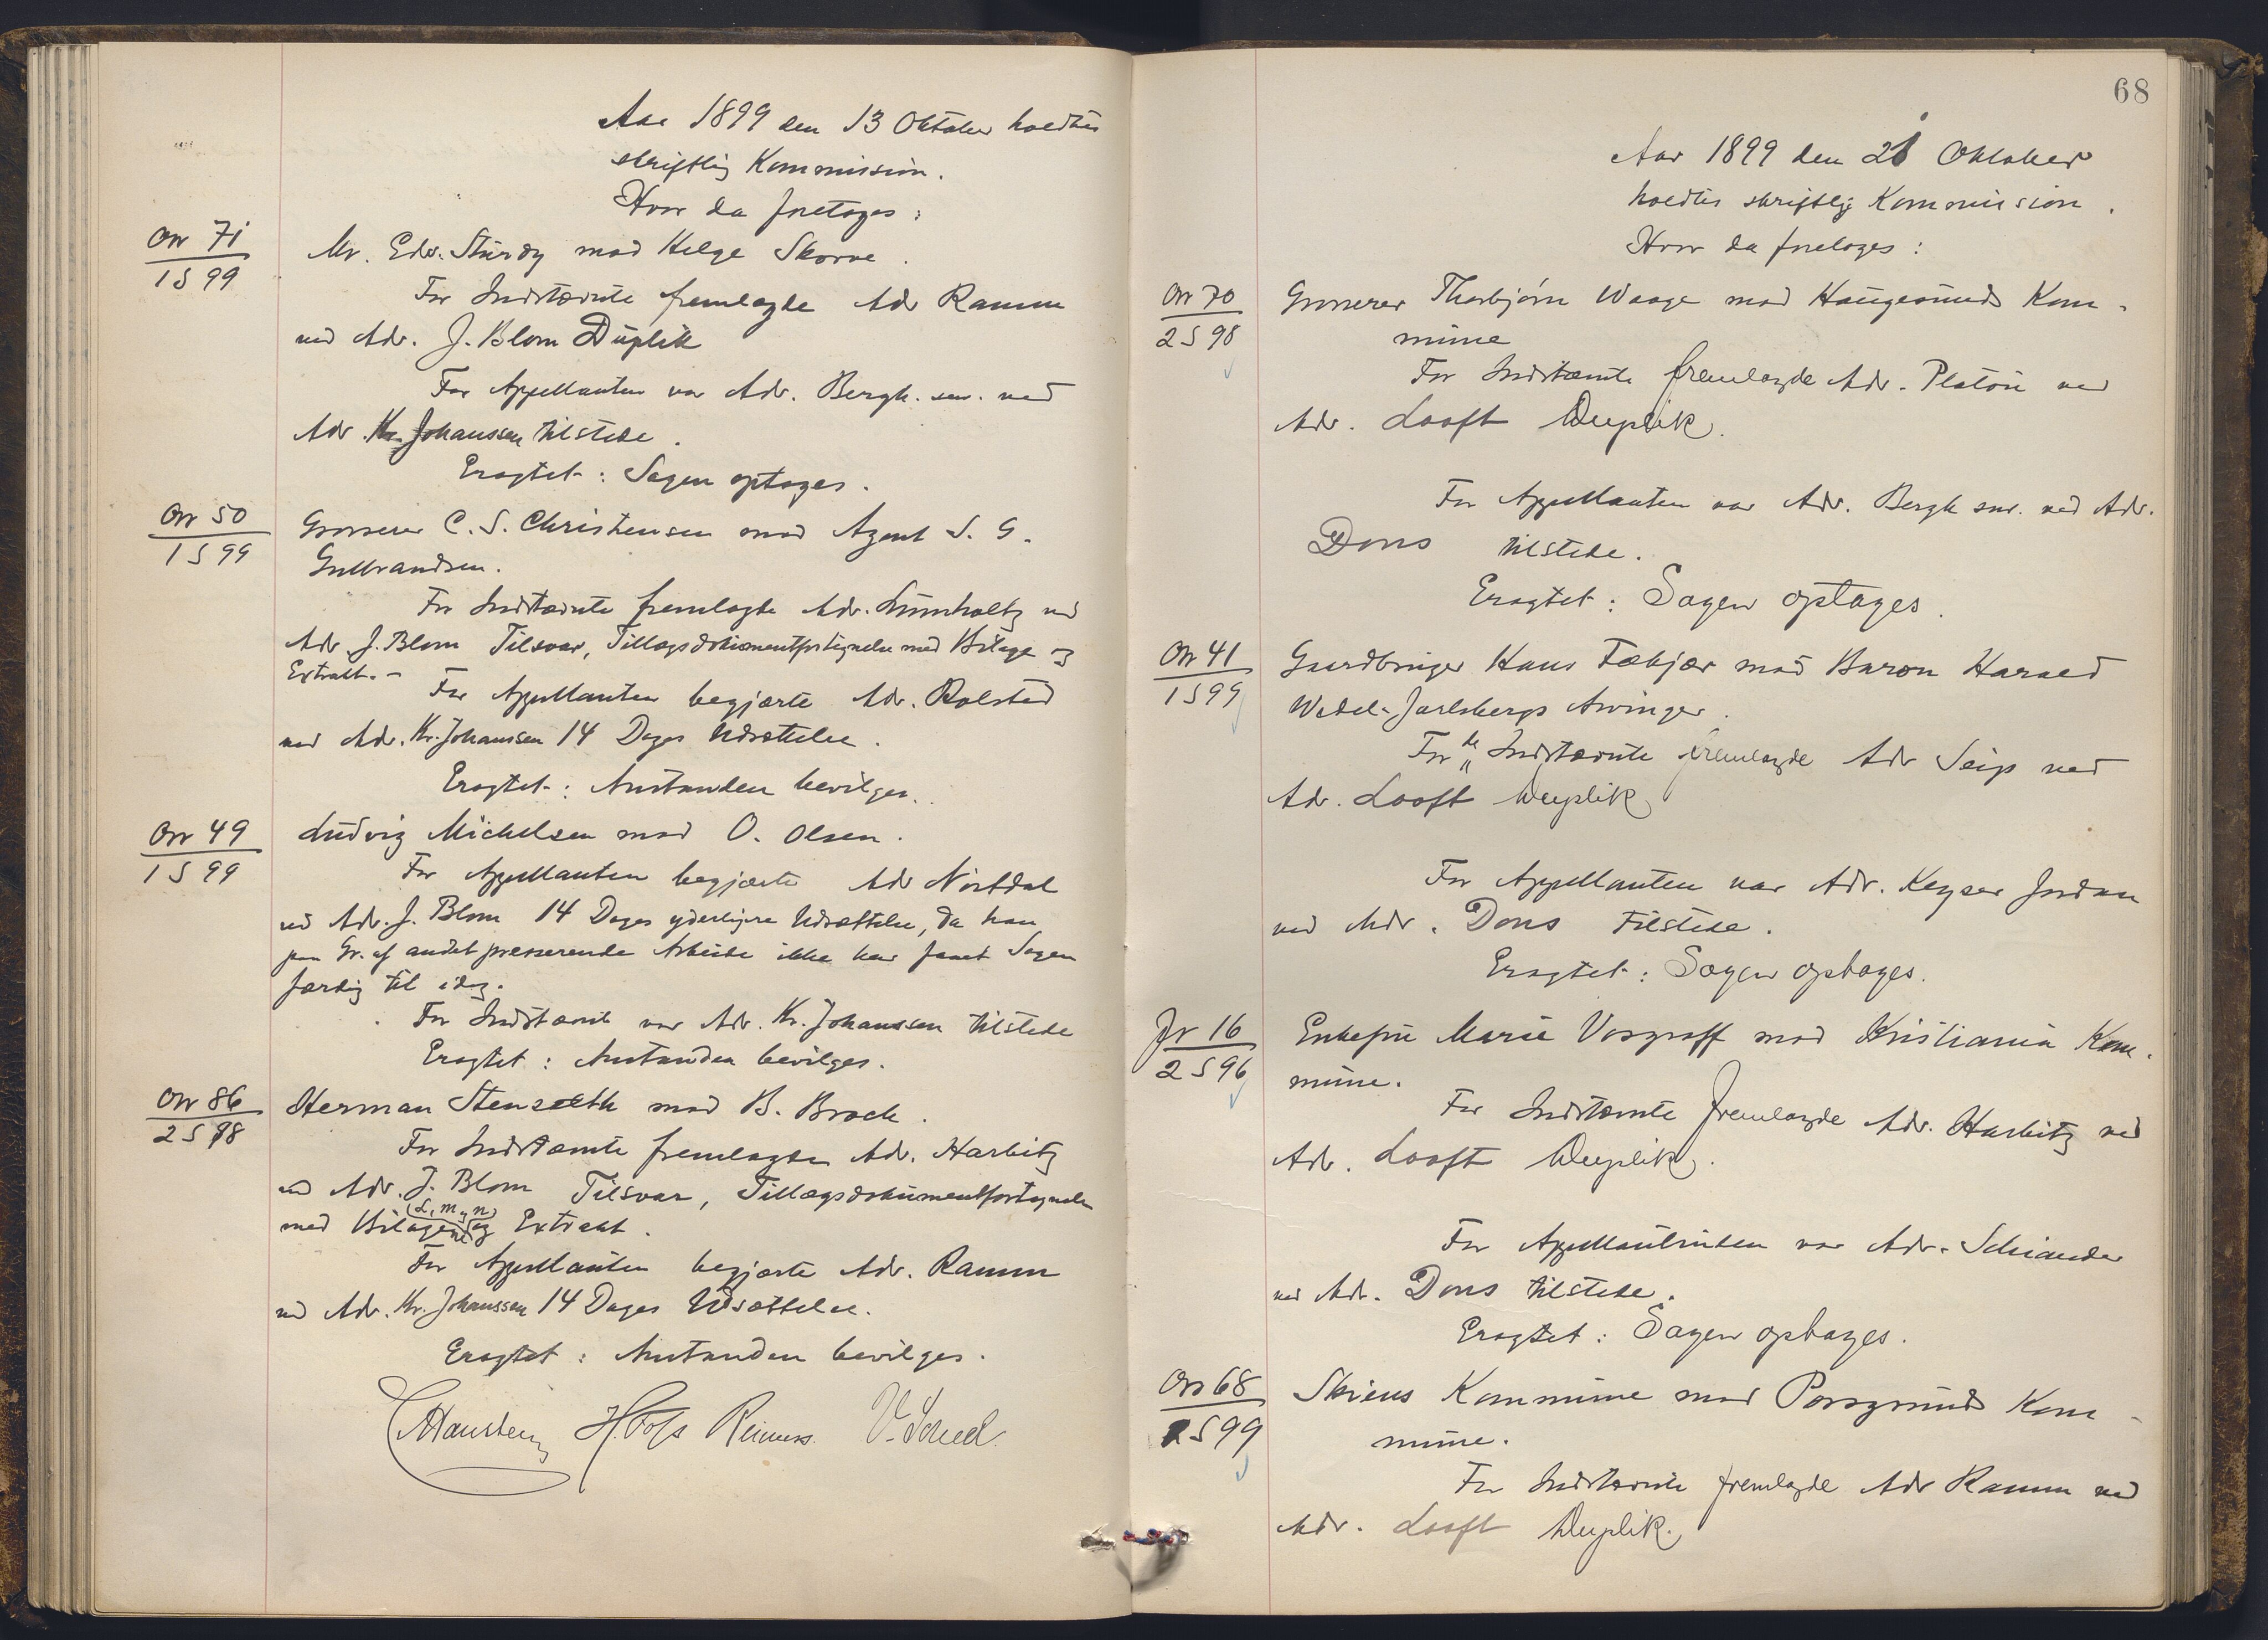 Aar 1899 den 13 Oktober holdtes
skriftlig Kommission.
Hvor da foretoges:
Or 71
1 S 99
Mr. Edw. Sturdy mod Helge Skorve.
For Indstævnte fremlagde Adv Ramm
ved Adv. J. Blom Duplik
For Appellanten var Adv. Bergh. sen. ved
Adv. Kr. Johanssen tilstede.
Eragtet: Sagen optages.
Or 50
1 S 99
Grosserer C. S. Christensen mod Agent S. G.
Gulbrandsen.
For Indstævnte fremlagde Adv. Lumholtz ved
Adv. J. Blom Tilsvar, Tillægsdokumentfortegnelse med Bilage og
Extrakt.-
For Appellanten begjærte Adv. Rolsted
ved Adv. Kr. Johanssen 14 Dages Udsættelse.
Eragtet: Anstanden bevilges.
Or 49
1 S 99
Ludvig Michelsen mod O. Olsen.
For Appellanten begjærte Adv Nordal
ved Adv. J. Blom 14 Dages yderligere Udsættelse, da han
paa Gr. af andet presserende Arbeide ikke har faaet Sagen
færdig til idag.
For Indstævnte var Adv. Kr. Johanssen tilstede
Eragtet: Anstanden bevilges.
Or 86
2 S 98
Herman Stenseth mod B. Brock.
For Indstævnte fremlagde Adv. Harbitz
ved Adv. J. Blom Tilsvar, Tillægsdokumentfortegnelse
(L, M, N)
med Bilagene og Extrakt.
For Appellanten begjærte Adv. Ramm
ved Adv. Kr. Johanssen 14 Dages Udsættelse.
Eragtet: Anstanden bevilges.
Reimers
68
Aar 1899 den 21 Oktober
holdtes skriftlig Kommission.
Hvor da foretoges:
Or 70
2 S 98
Grosserer Thorbjørn Waage mod Haugesunds Kom-
mune
For Indstævnte fremlagde Adv. Platou ved
Adv. Looft Duplik.
For Appellanten var Adv. Bergh senr. ved Adv.
Dons tilstede.
Eragtet: Sagen optages.
Or 41
1 S 99
Gaardbruger Hans Fæhjær mod Baron Harald
Wedel-Jarlsbergs Arvinger.
For de Indstævnte fremlagde Adv Seip ved
Adv. Looft Duplik
For Appellanten var Adv. Keyser Jordan
ved Adv. Dons tilstede.
Eragtet: Sagen optages.
Jr 16
2 S 96
Enkefru Marie Vosgraff mod Kristiania Kom-
mune.
For Indstævnte fremlagde Adv. Harbitz ved
Adv. Looft Duplik.
For Appellantinden var Adv. Schiander
ved Adv. Dons tilstede.
Eragtet: Sagen optages.
Or 68
1 S 99
Skiens Kommune mod Porsgrunds Kom-
mune.
For Indstævnte fremlagde Adv Ramm ved
Adv. Looft Duplik.